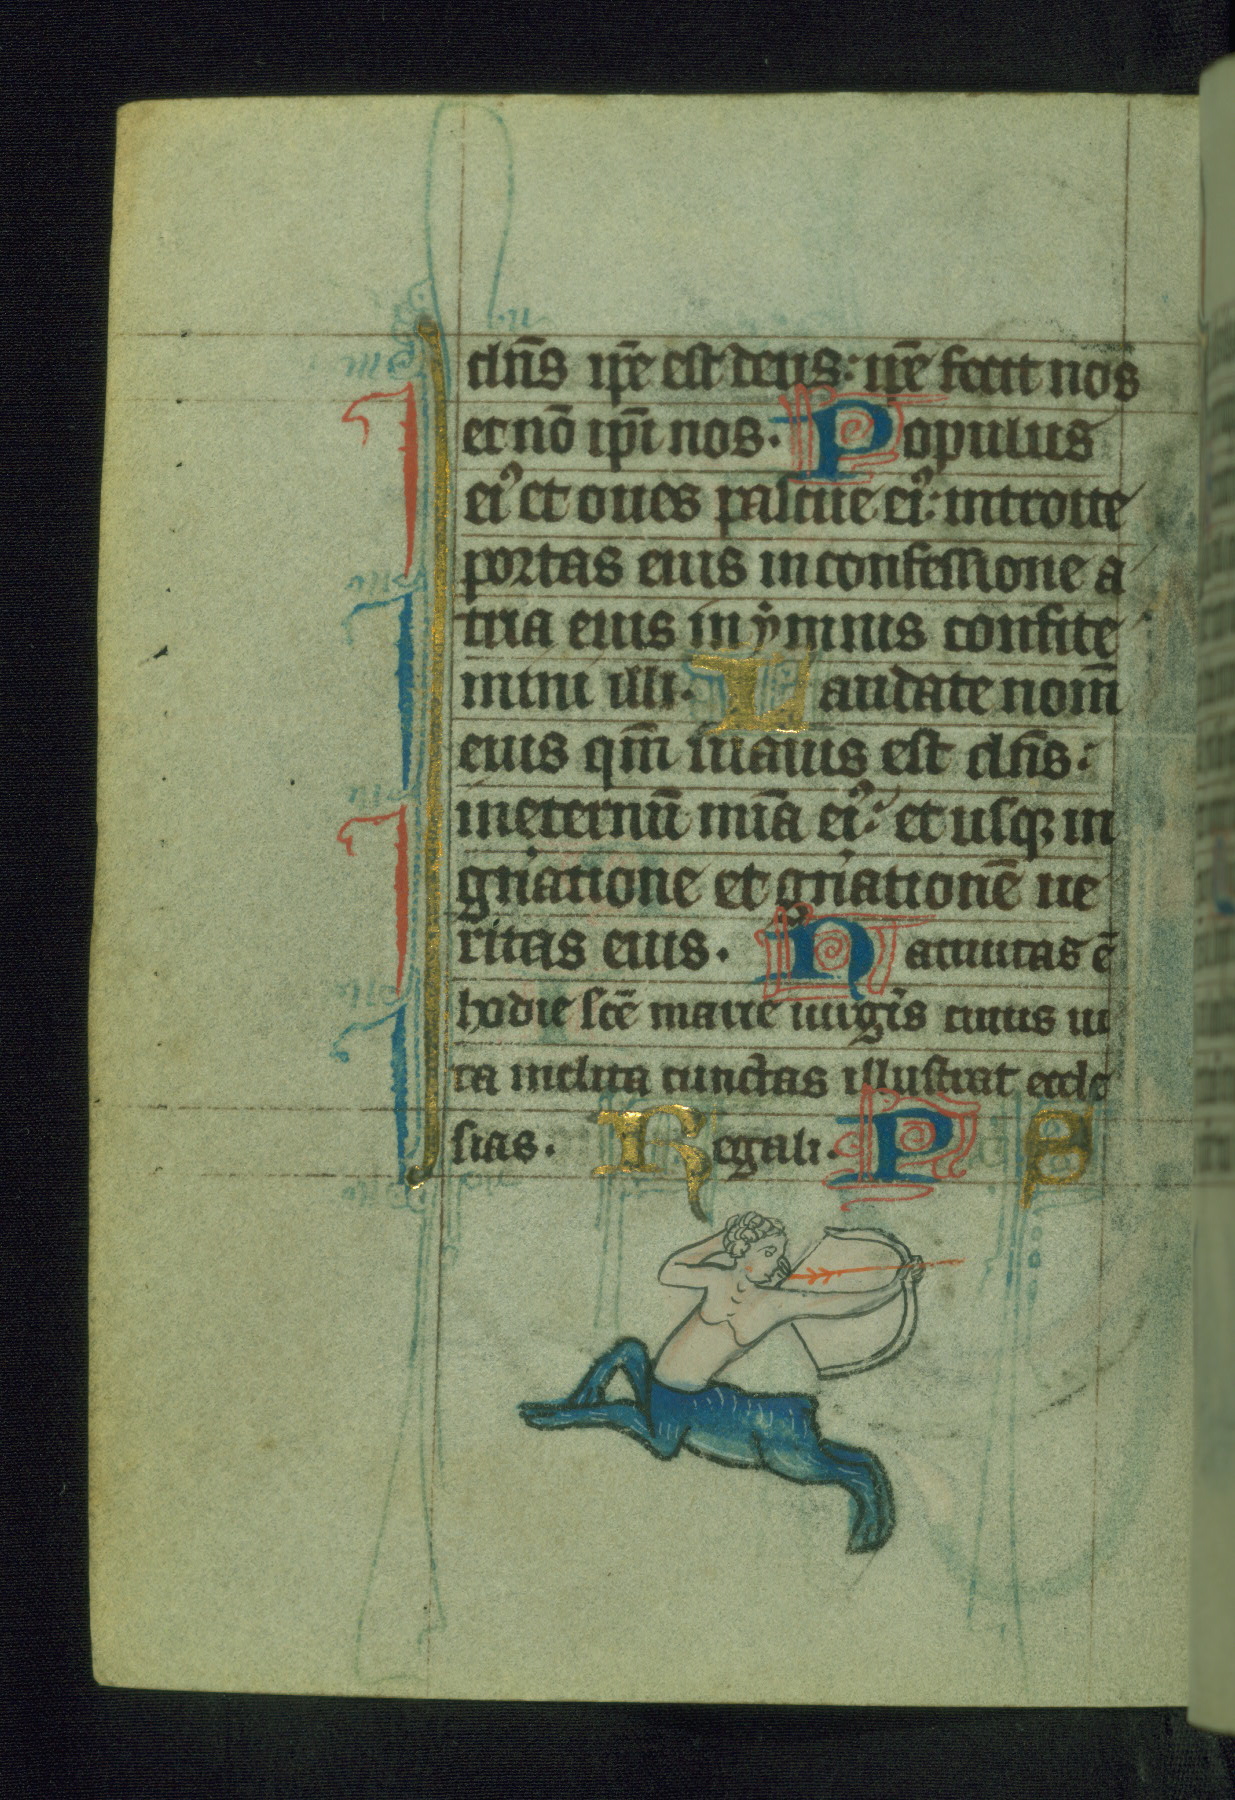 dn̄s ip̄e est deus: ip̄e fecit nos
et nō ip̄i nos. Populus
ei⁹ et oues pascue ei⁹: introite
portas eius in confessione a
tria eius in ẏmnis confite
mini illi. Laudate nom̄
eius qm̄ suauis est dn̄s:
in eternū mīa ei⁹: et usqꝫ in
gn̄atione et gn̄ationē ue
ritas eius. Natiuitas ē
hodie scē marie uirgīs cuius ui
ta inclita cunctas illustrat eccle
sias. Regali. P S